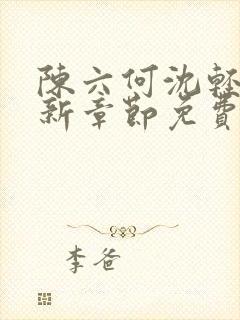 陳六何沈輕
新章節免費
李爸